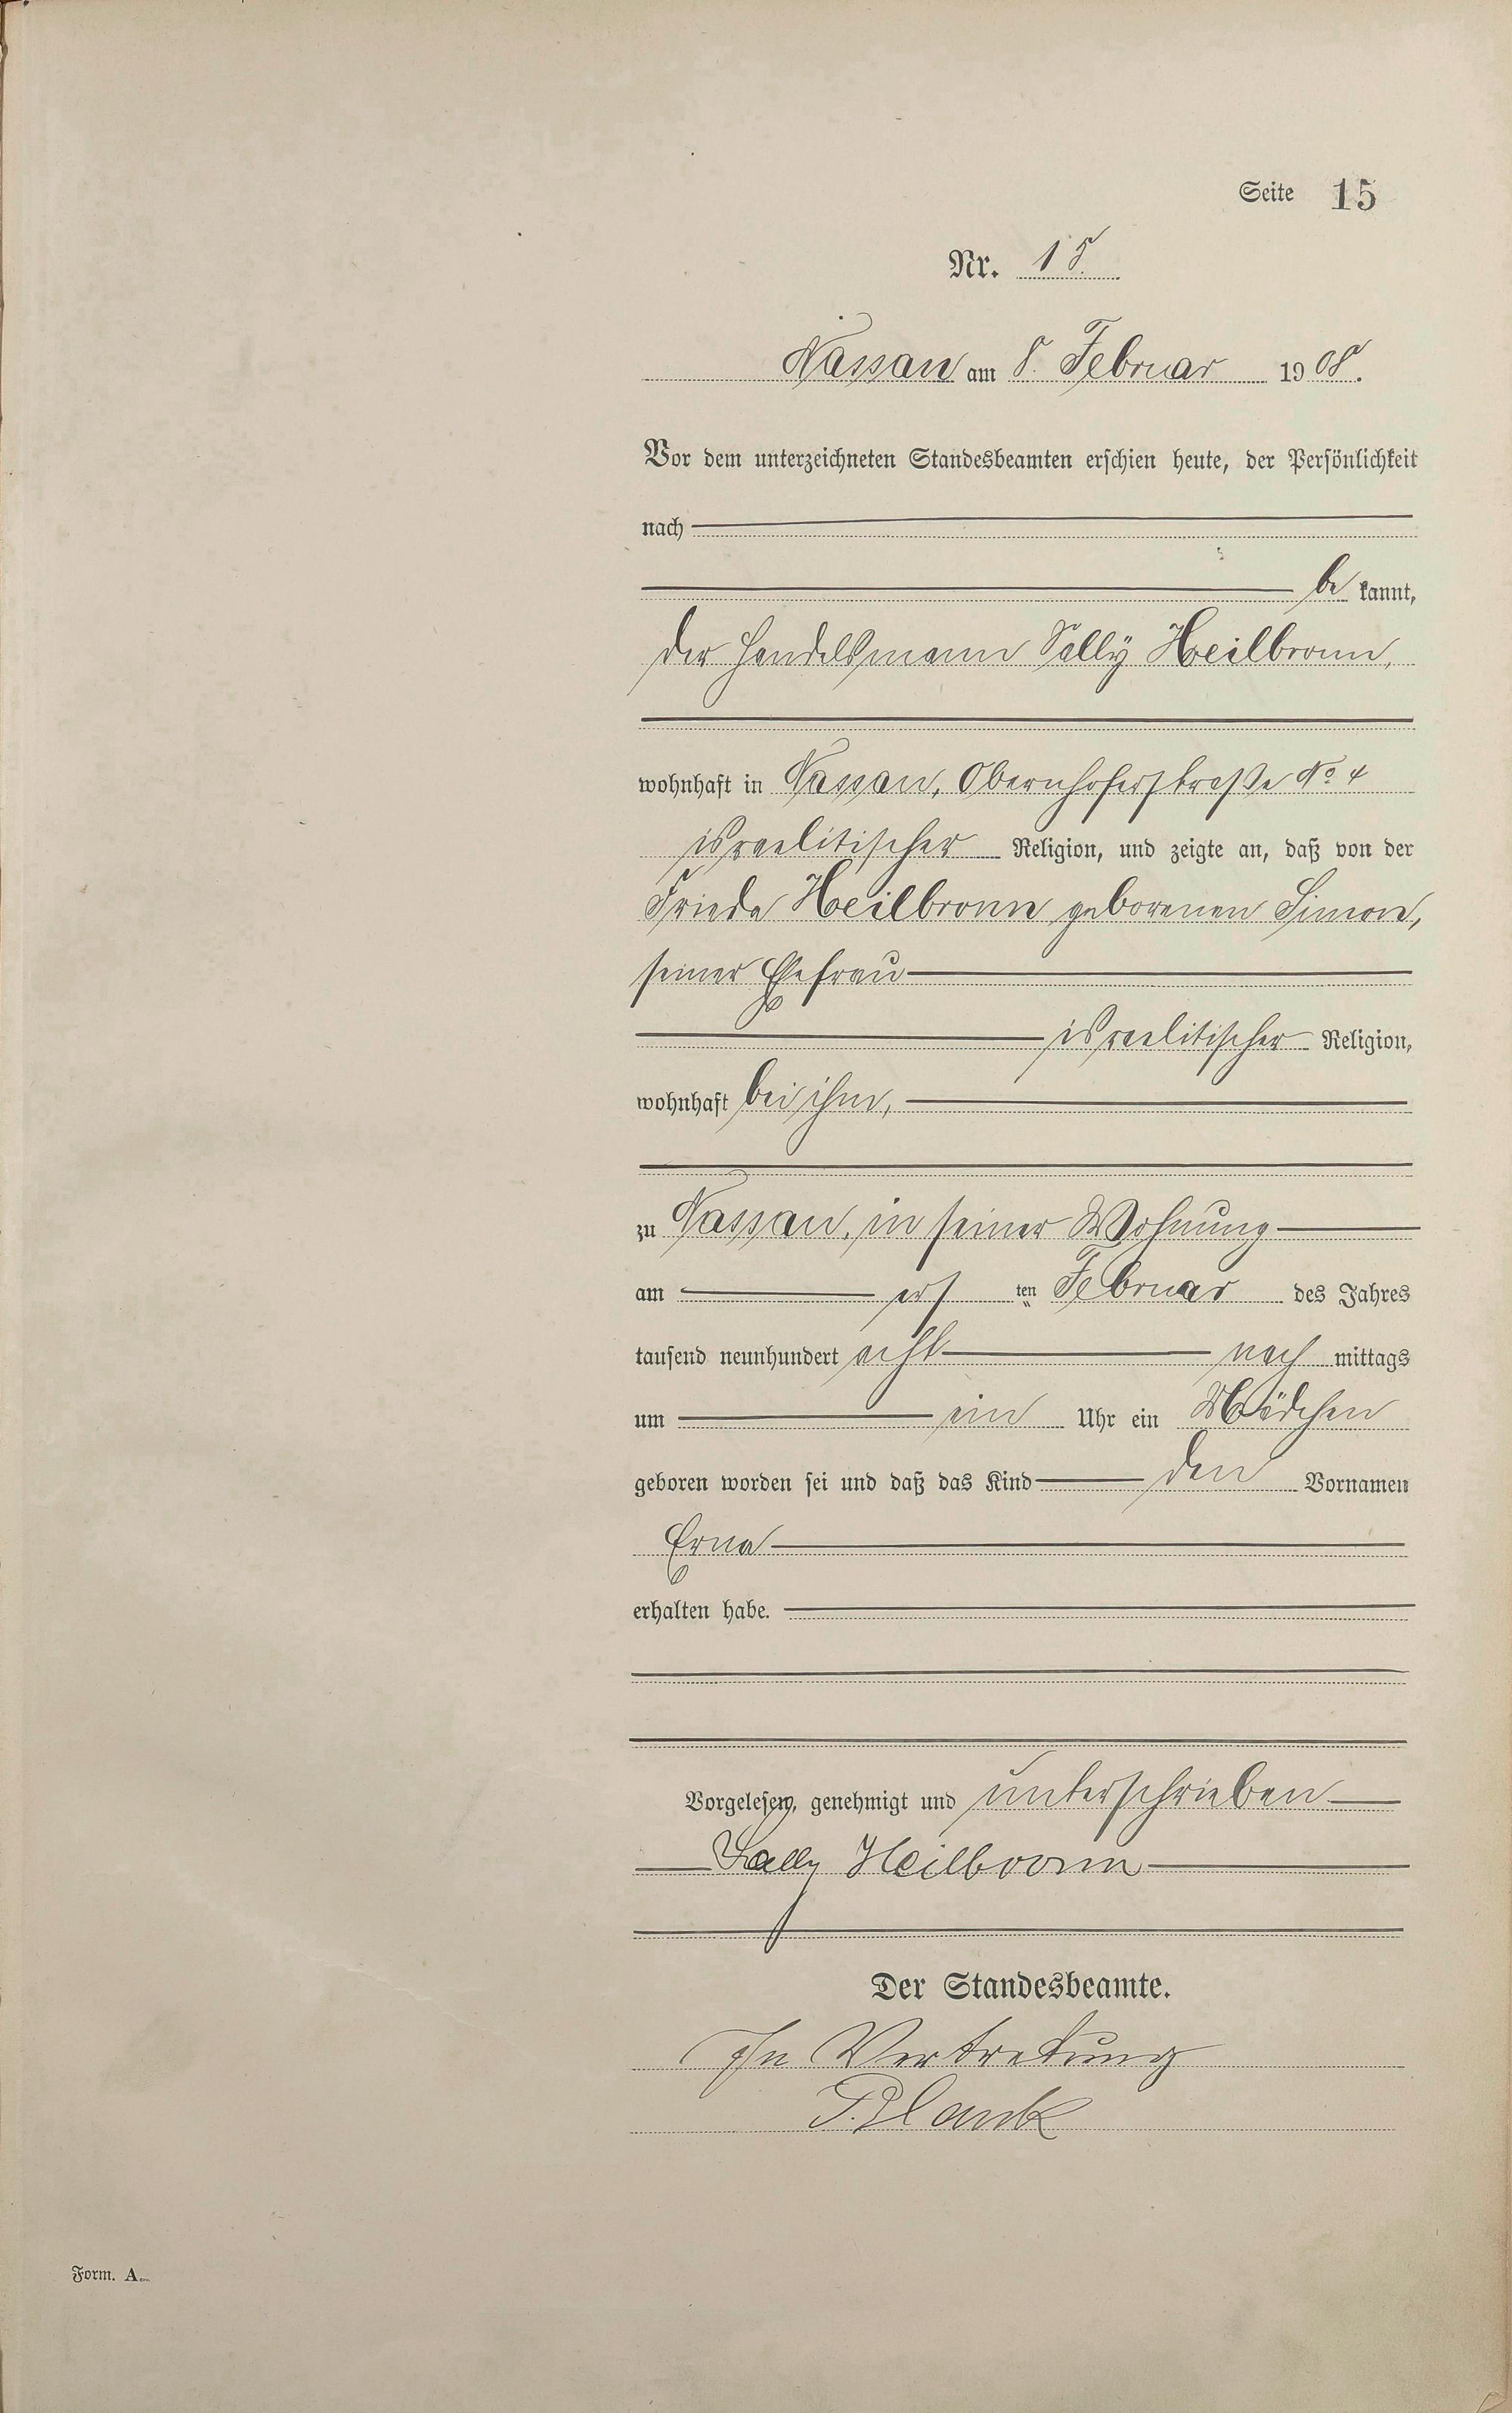 Seite 15
Nr. 15.
Nassau am 8. Februar 1908.
Vor dem unterzeichneten Standesbeamten erschien heute, der Persönlichkeit
nach
be kannt,
der Handelsmann Sally Heilbronn,
wohnhaft in Nassau, Obernhoferstraße No 4
israelitischer Religion, und zeigte an, daß von der
Frieda Heilbronn geborenen Simon,
seiner Ehefrau
israelitischer Religion,
wohnhaft bei ihm,
zu Nassau, in seiner Wohnung
am ersten Februar des Jahres
tausend neunhundert acht nach mittags
um ein Uhr ein Mädchen
geboren worden sei und daß das Kind den Vornamen
Erna
erhalten habe.
Vorgelesen, genehmigt und unterschrieben
Sally Heilbronn
Der Standesbeamte.
In Vertretung
Blank
Form. A.